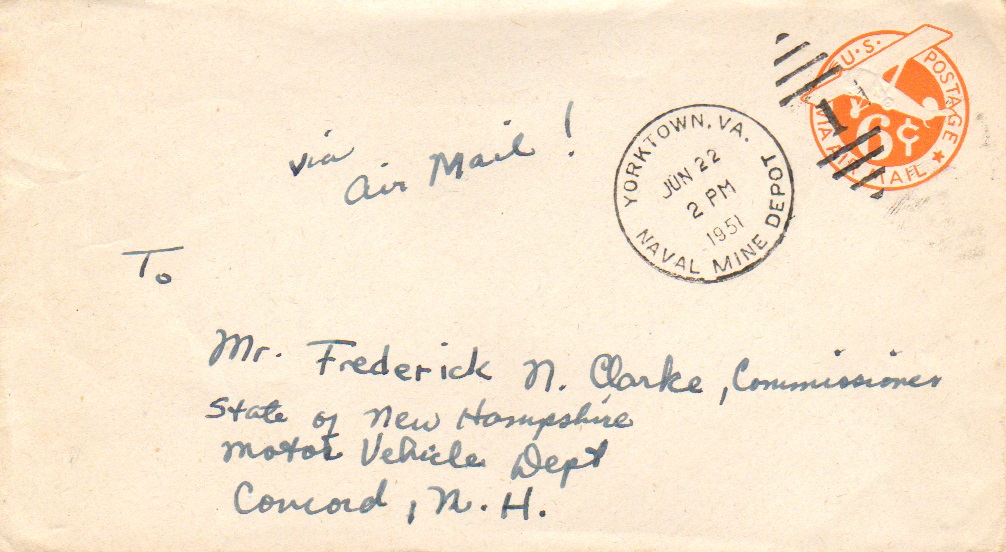 U.S. POSTAGE
6¢
VIA AIR MAIL
YORKTOWN, VA.
JUN 22
2 PM
1951
NAVAL MINE DEPOT
1
via
Air Mail!
To
Mr. Frederick N. Clarke, Commissioner
State of New Hampshire
Motor Vehicle Dept
Concord, N. H.